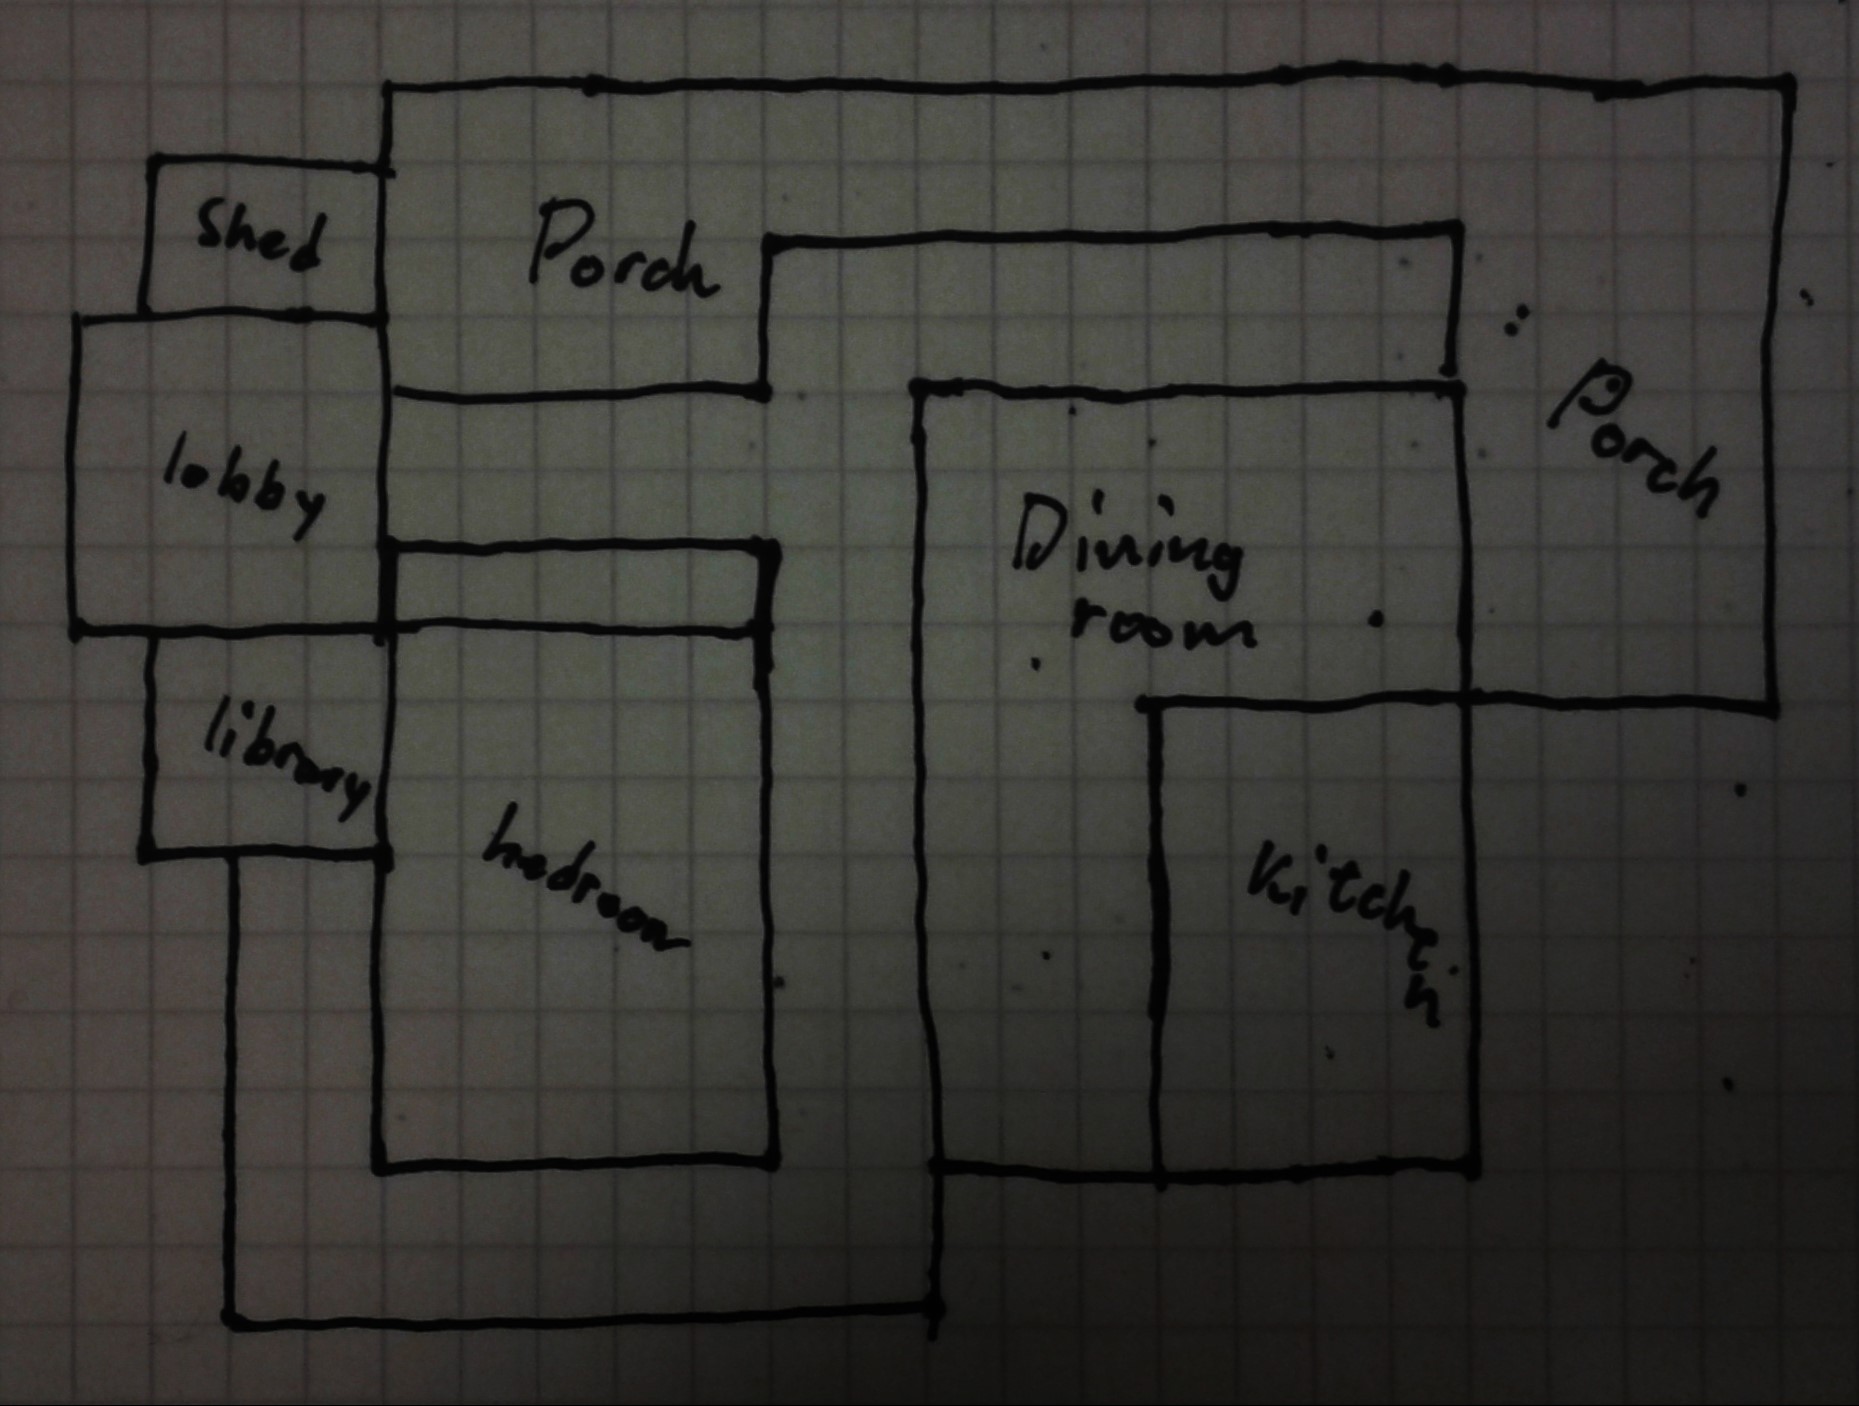 Shed
Porch
Porch
lobby
Dining
room
library
bedroom
Kitchen